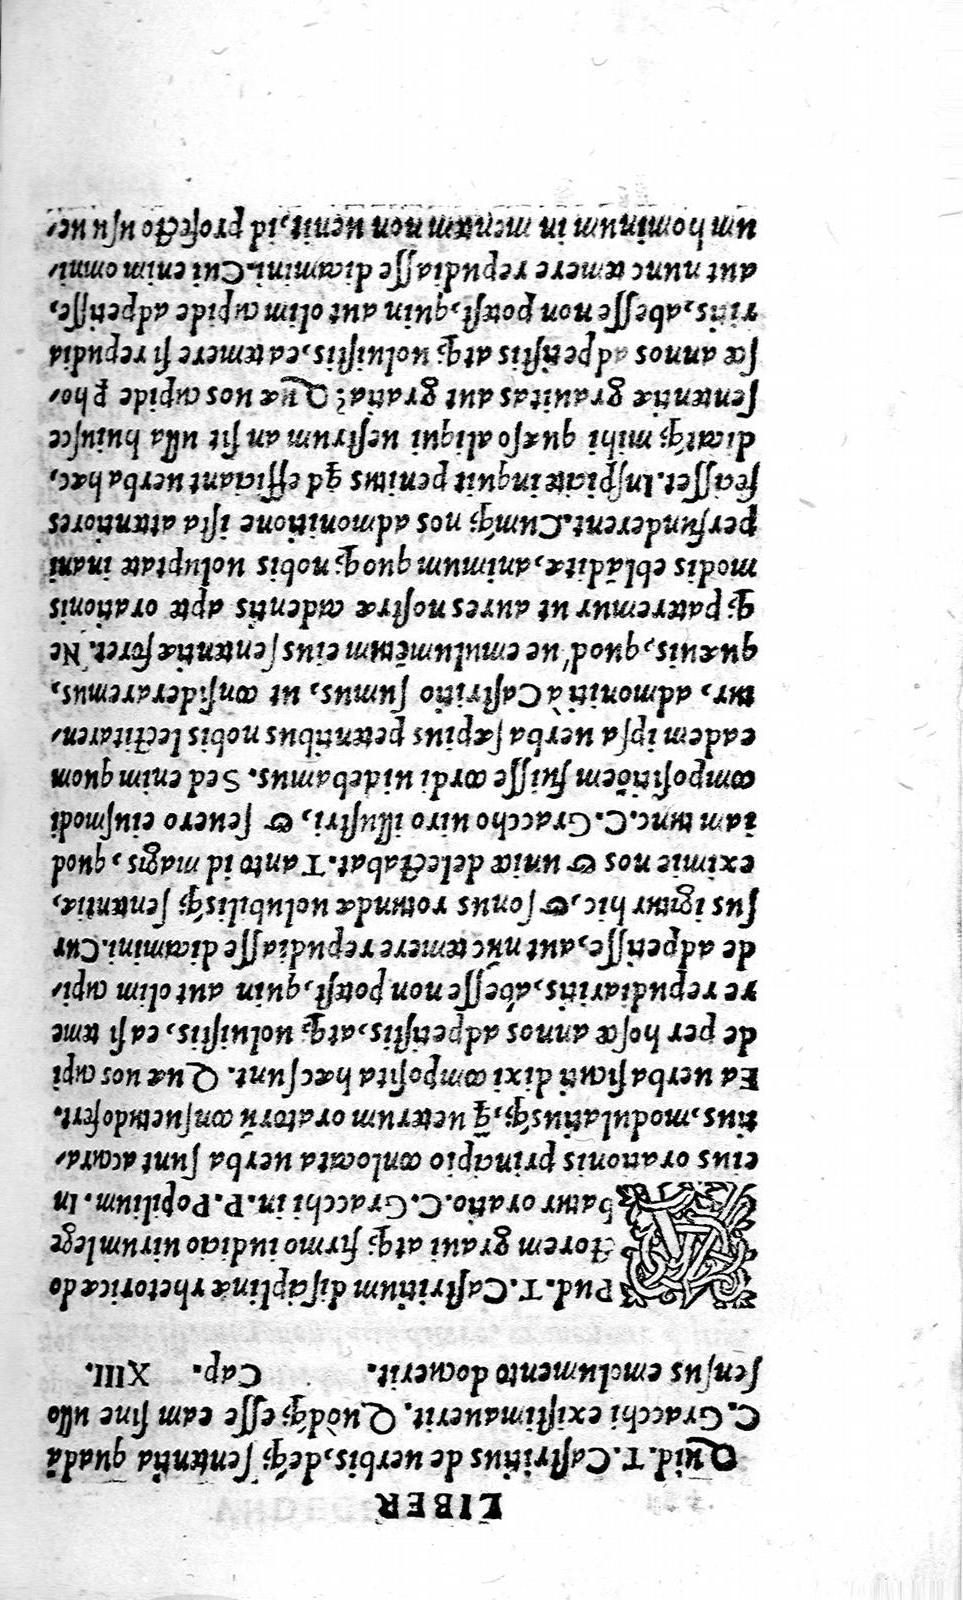 LIBER
Quid. T. Caſtritius de uerbis, déq; ſententia quadã
C. Gracchi exiſtimauerit. Quòdq; eſſe eam ſine ullo
ſenſus emolumento docuerit. Cap. XIII.
APud. T. Caſtritium diſciplinæ rhetoricæ do
ctorem graui atq; firmo iudicio uirum lege
batur oratio. C. Gracchi in. P. Popilium. In
eius orationis principio conlocata uerba ſunt accura⸗
tius, modulatiúsq;, q̃ ueterum oratorũ conſuetudo fert.
Ea uerba ſicuti dixi compoſita hæc ſunt. Quæ uos cupi
de per hoſce annos adpetiſtis, atq; uoluiſtis, ea ſi teme
re repudiaritis, abeſſe non poteſt, quin aut olim cupi⸗
de adpetiſſe, aut nũc temere repudiaſſe dicamini. Cur
ſus igitur hic, & ſonus rotundæ uolubilisq; ſententiæ,
eximie nos & unice delectabat. Tanto id magis, quod
iam tunc. C. Graccho uiro illuſtri, & ſeuero eiuſmodi
compoſitiõem fuiſſe cordi uidebamus. Sed enim quom
eadem ipſa uerba ſæpius petentibus nobis lectitaren⸗
tur, admoniti à Caſtritio ſumus, ut conſideraremus,
quæ uis, quod'ue emulumẽtum eius ſententiæ foret. Ne
q; pateremur ut aures noſtræ cadentis apte orationis
modis eblãditæ, animum quoq; nobis uoluptate inani
perfunderent. Cumq; nos admonitione iſta attentiores
feciſſet. Inſpicite inquit penitus qd efficiant uerba hæc,
dicatq; mihi quæſo aliqui ueſtrum an ſit ulla huiuſce
ſententiæ grauitas aut gratia? Quæ uos cupide ꝑ hoſ⸗
ſce annos adpetiſtis atq; uoluiſtis, ea temere ſi repudia
ritis, abeſſe non poteſt, quin aut olim cupide adpetiſſe,
aut nunc temere repudiaſſe dicamini. Cui enim omni⸗
um hominum in mentem non uenit, id profecto uſu ue⸗